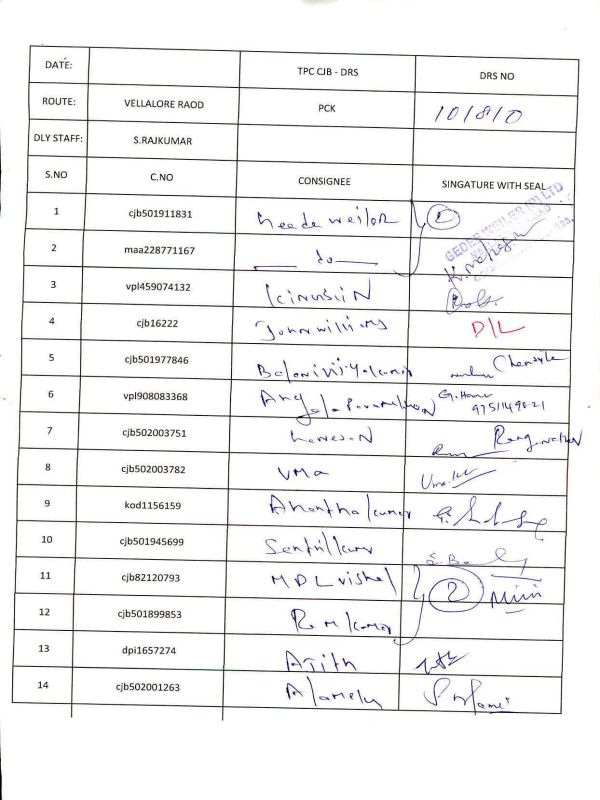 DATE: TPC CJB - DRS DRS NO
ROUTE: VELLALORE RAOD PCK 101810
DLY STAFF: S.RAJKUMAR
S.NO C.NO CONSIGNEE SINGATURE WITH SEAL
1 cjb501911831 weiler 2
GEDEE WEILER (P) LTD
2 maa228771167 — do —
3 vpl459074132
4 cjb16222 John williams D/L
5 cjb501977846
6 vpl908083368 Angala
9751149821
7 cjb502003751
8 cjb502003782 UMA
9 kod1156159 Anantha kumar
10 cjb501945699 Senthilkumar
11 cjb82120793 MDL vishal 2
12 cjb501899853 Ramkumar
13 dpi1657274 Ajith
14 cjb502001263 Alamelu